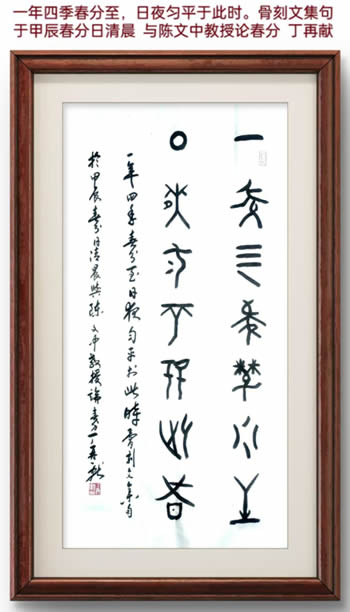 一年四季春分至，日夜匀平于此时。骨刻文集句
于甲辰春分日清晨 与陈文中教授论春分 丁再献
一年四季春分至
日夜匀平于此时
一年四季春分至日夜匀平於此時骨刻文集句
於甲辰春分日清晨與陳文中教授論春分丁再献